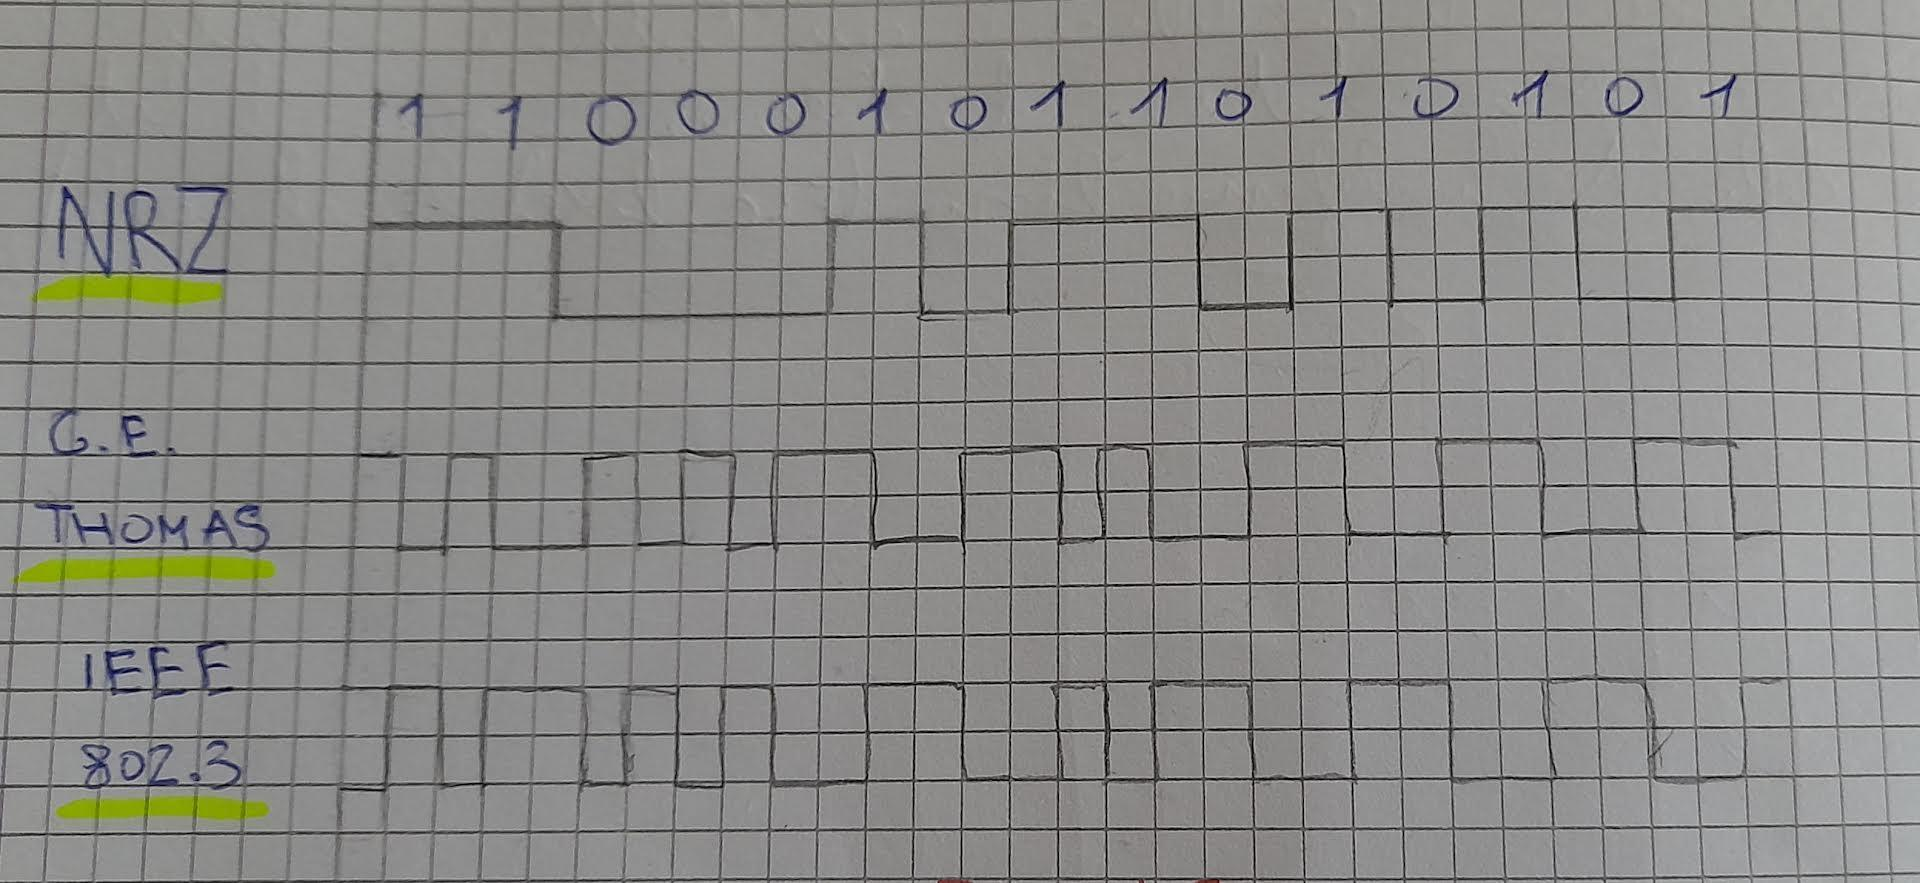 1 1 0 0 0 1 0 1 1 0 1 0 1 0 1
NRZ
G.E.
THOMAS
IEEE
802.3